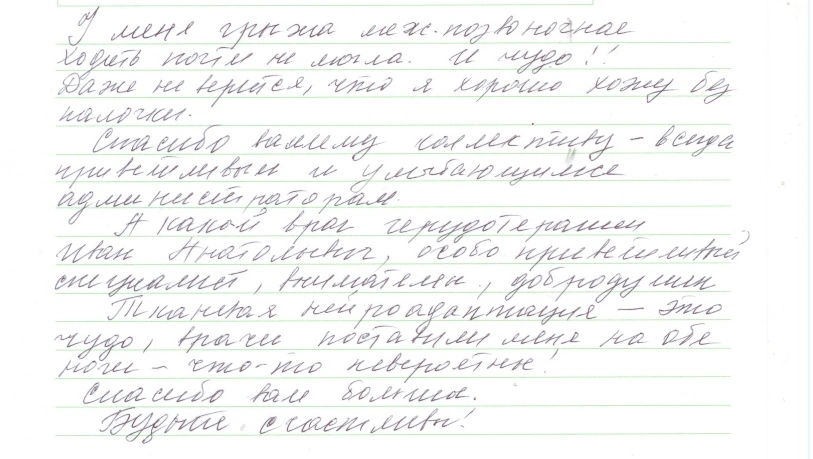 У меня грыжа меж.позвоночная
ходить почти не могла. И чудо!!
Даже не верится, что я хорошо хожу без
палочки.
Спасибо вашему коллективу – всегда
приветливым и улыбающимся
администраторам.
А какой врач герудотерапии
Иван Анатольевич, особо приветливый
специалист, внимателен, добродушен
Тканевая нейроадаптация – это
чудо, врачи поставили меня на обе
ноги – что-то невероятное!
Спасибо вам большое.
Будьте счастливы!